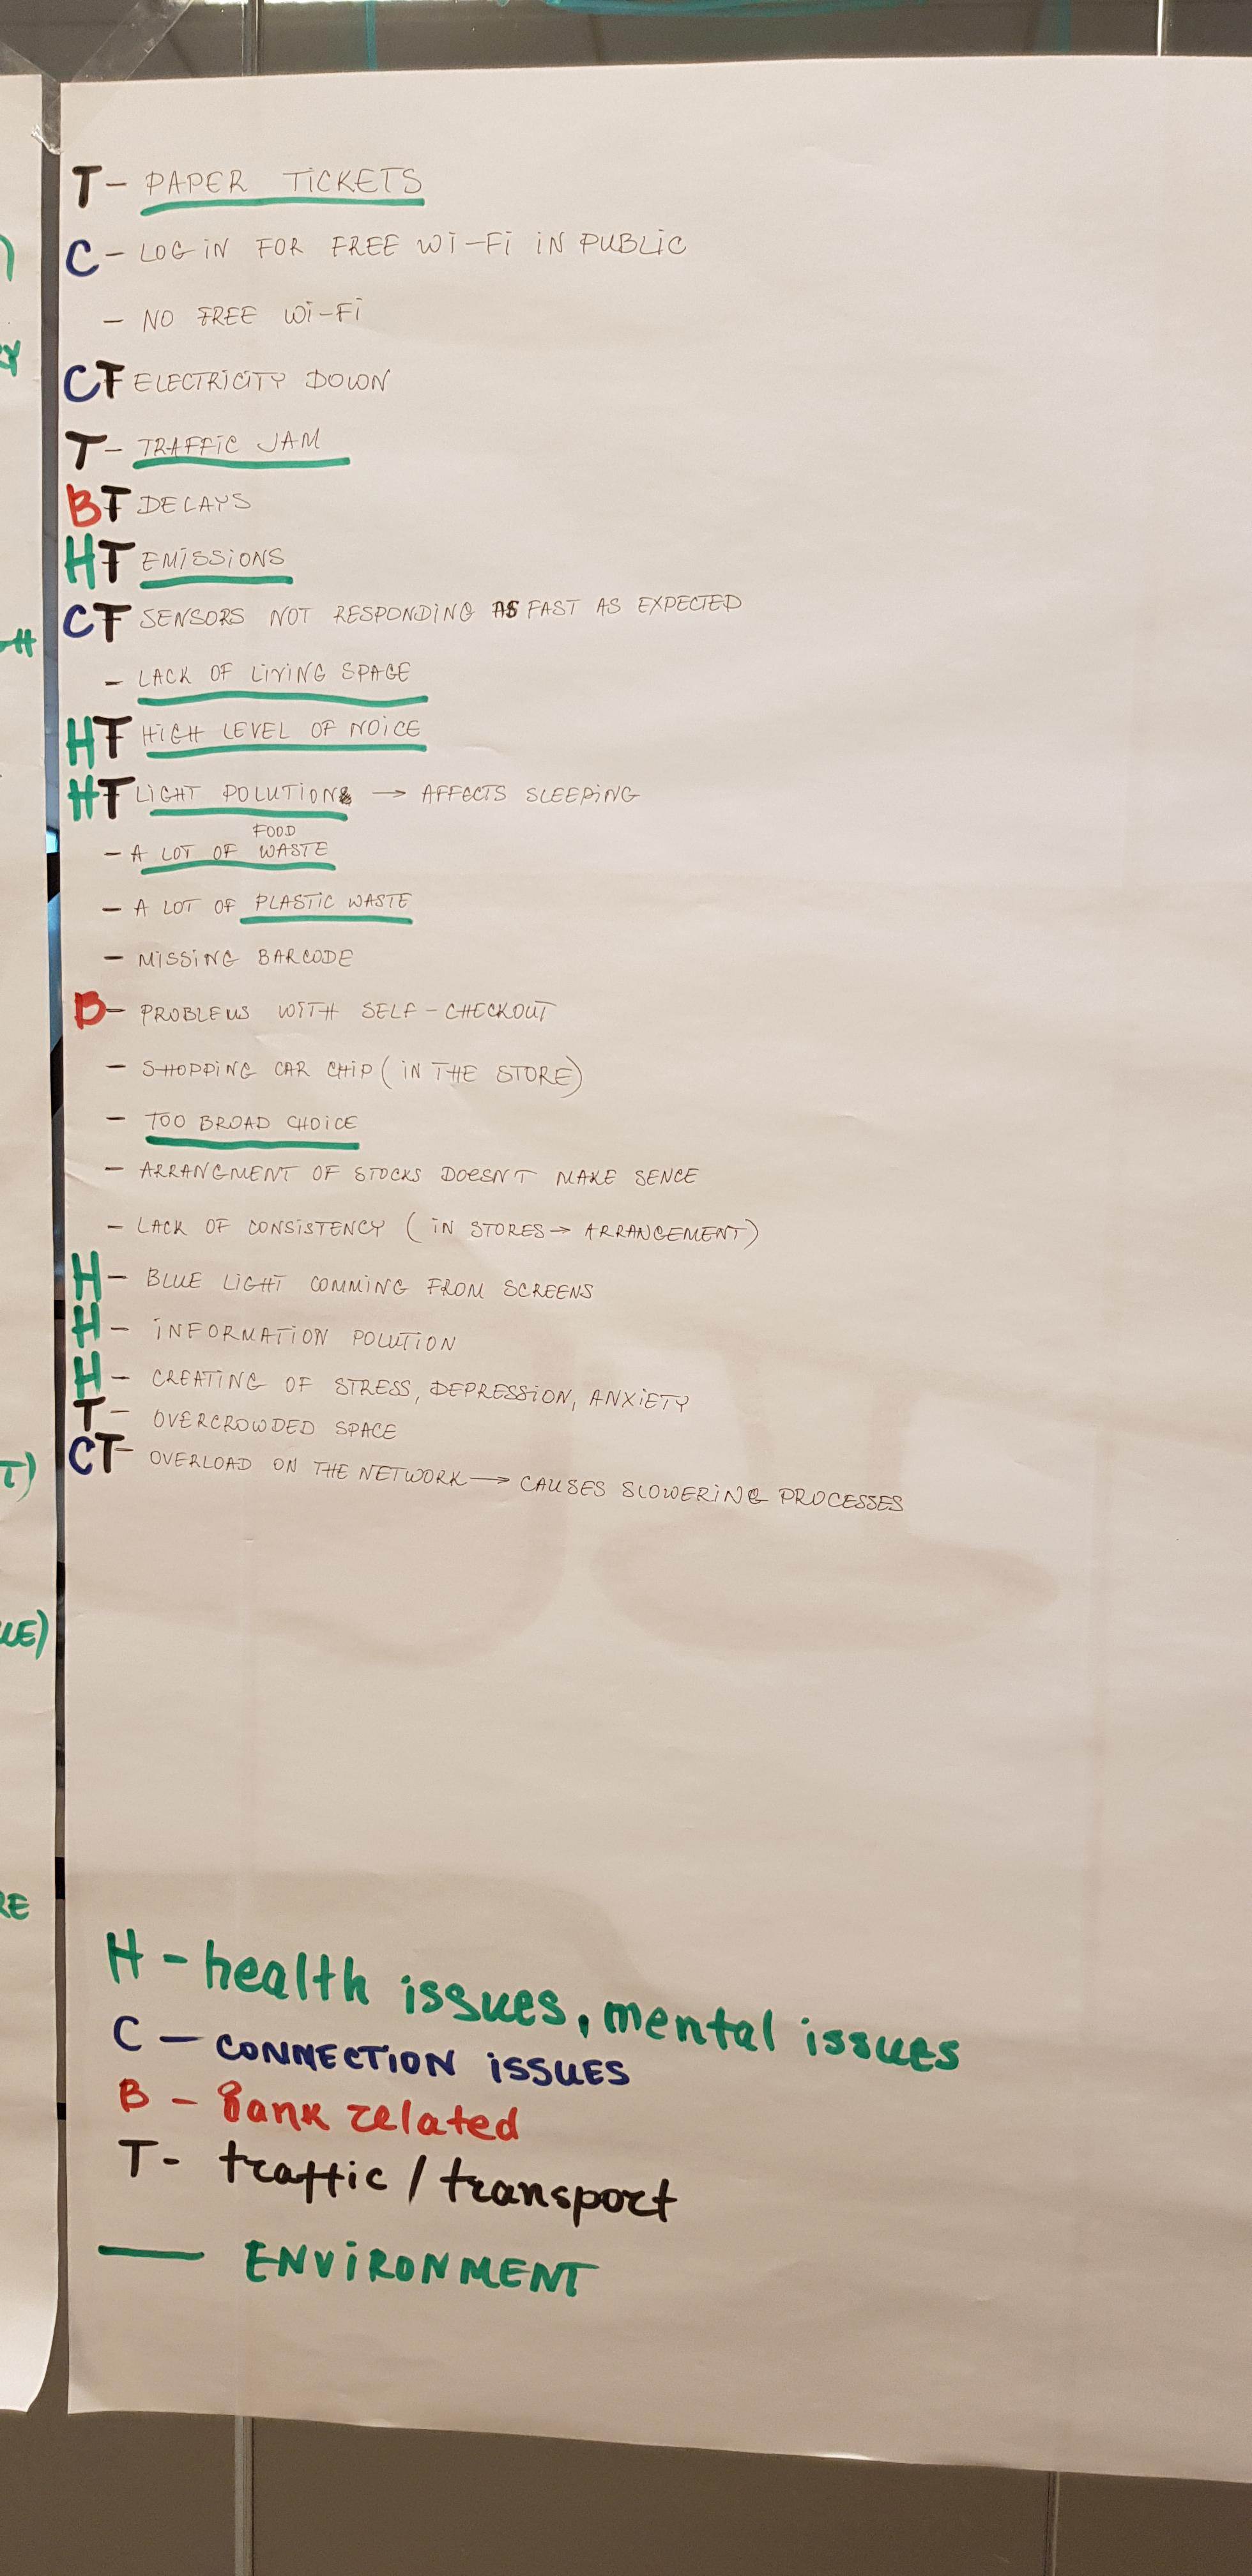 T- PAPER TICKETS
C- LOG IN FOR FREE WI-FI IN PUBLIC
- NO FREE WI-FI
CT ELECTRICITY DOWN
T- TRAFFIC JAM
BT DELAYS
HT EMISSIONS
CT SENSORS NOT RESPONDING AS FAST AS EXPECTED
- LACK OF LIVING SPACE
HT HIGH LEVEL OF NOICE
HT LIGHT POLUTION → AFFECTS SLEEPING
FOOD
- A LOT OF WASTE
- A LOT OF PLASTIC WASTE
- MISSING BARCODE
B- PROBLEMS WITH SELF-CHECKOUT
- SHOPPING CAR CHIP (IN THE STORE)
- TOO BROAD CHOICE
- ARRANGMENT OF STOCKS DOESN'T MAKE SENCE
- LACK OF CONSISTENCY (IN STORES → ARRANGEMENT)
H- BLUE LIGHT COMMING FROM SCREENS
H- INFORMATION POLUTION
H- CREATING OF STRESS, DEPRESSION, ANXIETY
T- OVERCROWDED SPACE
CT- OVERLOAD ON THE NETWORK → CAUSES SLOWERING PROCESSES
H - health issues, mental issues
C - CONNECTION ISSUES
B - Bank related
T- traffic / transport
— ENVIRONMENT